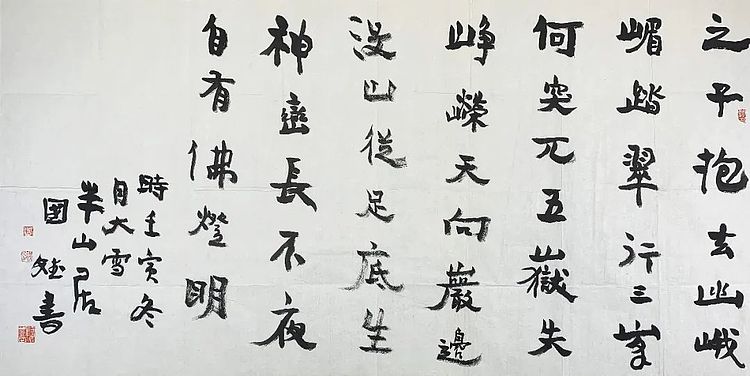 之子抱玄幽峨
嵋踏翠行三峯
何突兀五嶽失
崢嶸天向巖邊
没山從足底生
神巒長不夜
自有佛燈明
時壬寅冬
月大雪
半山居
國斌書